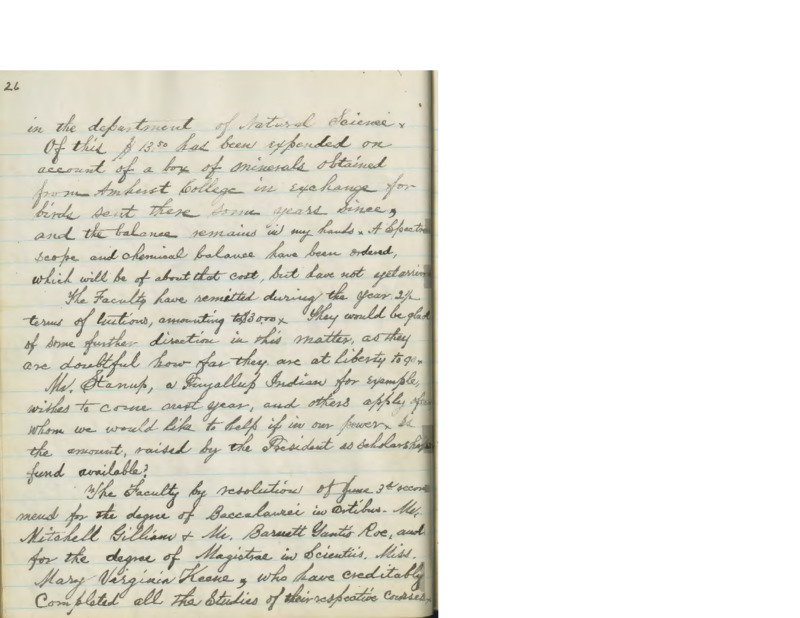 26
in the department of Natural Science.
Of this $13.50 has been expended on
account of a box of minerals obtained
from Amherst College in exchange for
birds sent there some years since,
and the balance remains in my hands. A Spectro
scope and chemical balance have been ordered,
which will be of about that cost, but have not yet arrived
The Faculty have remitted during the year 2½
terms of tuitions, amounting to $30.00. They would be glad
of some further direction in this matter, as they
are doubtful how far they are at liberty to go.
Mr. Stanup, a Puyallup Indian for example,
wishes to come next year, and others apply
whom we would like to help if in our power. Is
the amount, raised by the President as scholarship
fund available?
The Faculty by resolution of June 3d recom
mend for the degree of Baccalaurei in Artibus. Mr.
Mitchell Gilliam & Mr. Barnett Yantis Roe, and
for the degree of Magistrae in Scientiis, Miss.
Mary Virginia Keene, who have creditably
Completed all the Studies of their respective courses.